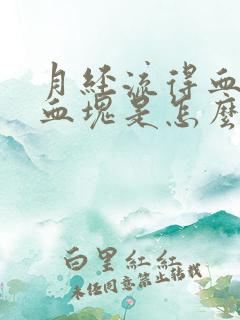 月经流得血
血塊是怎麼
白里紅紅
未经同意禁止转载